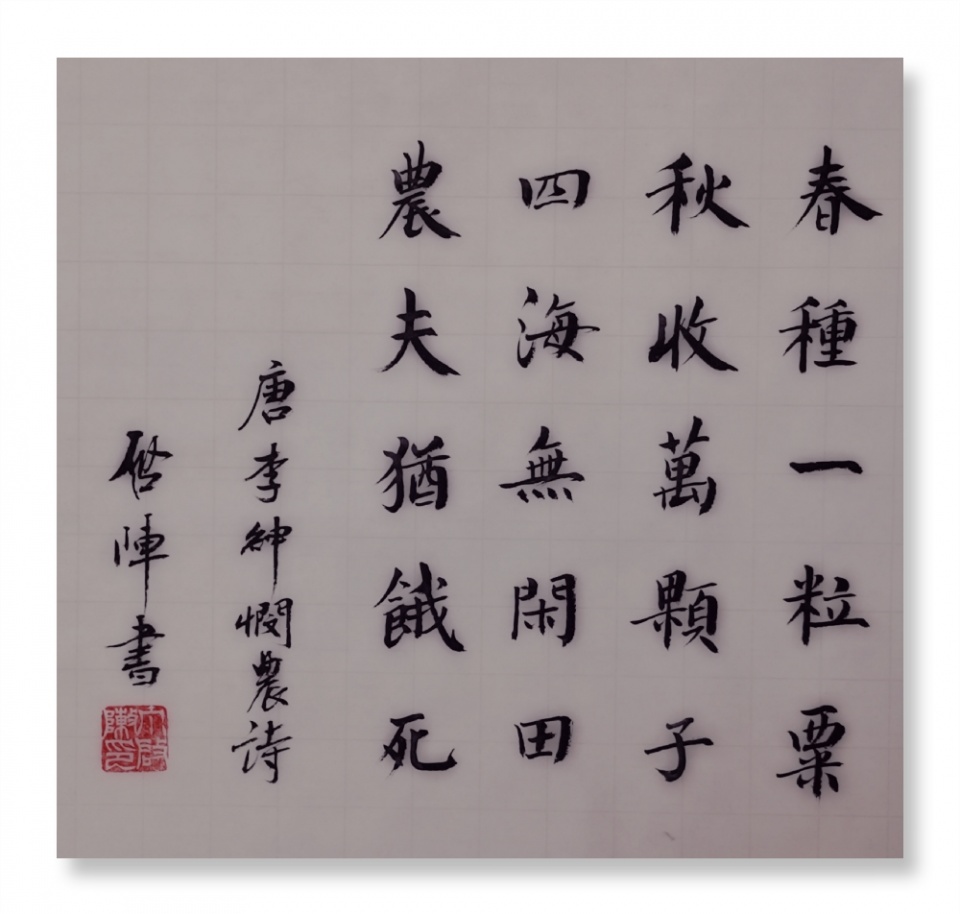 春種一粒粟
秋收萬顆子
四海無閑田
農夫猶餓死
唐李紳憫農詩
啓陣書